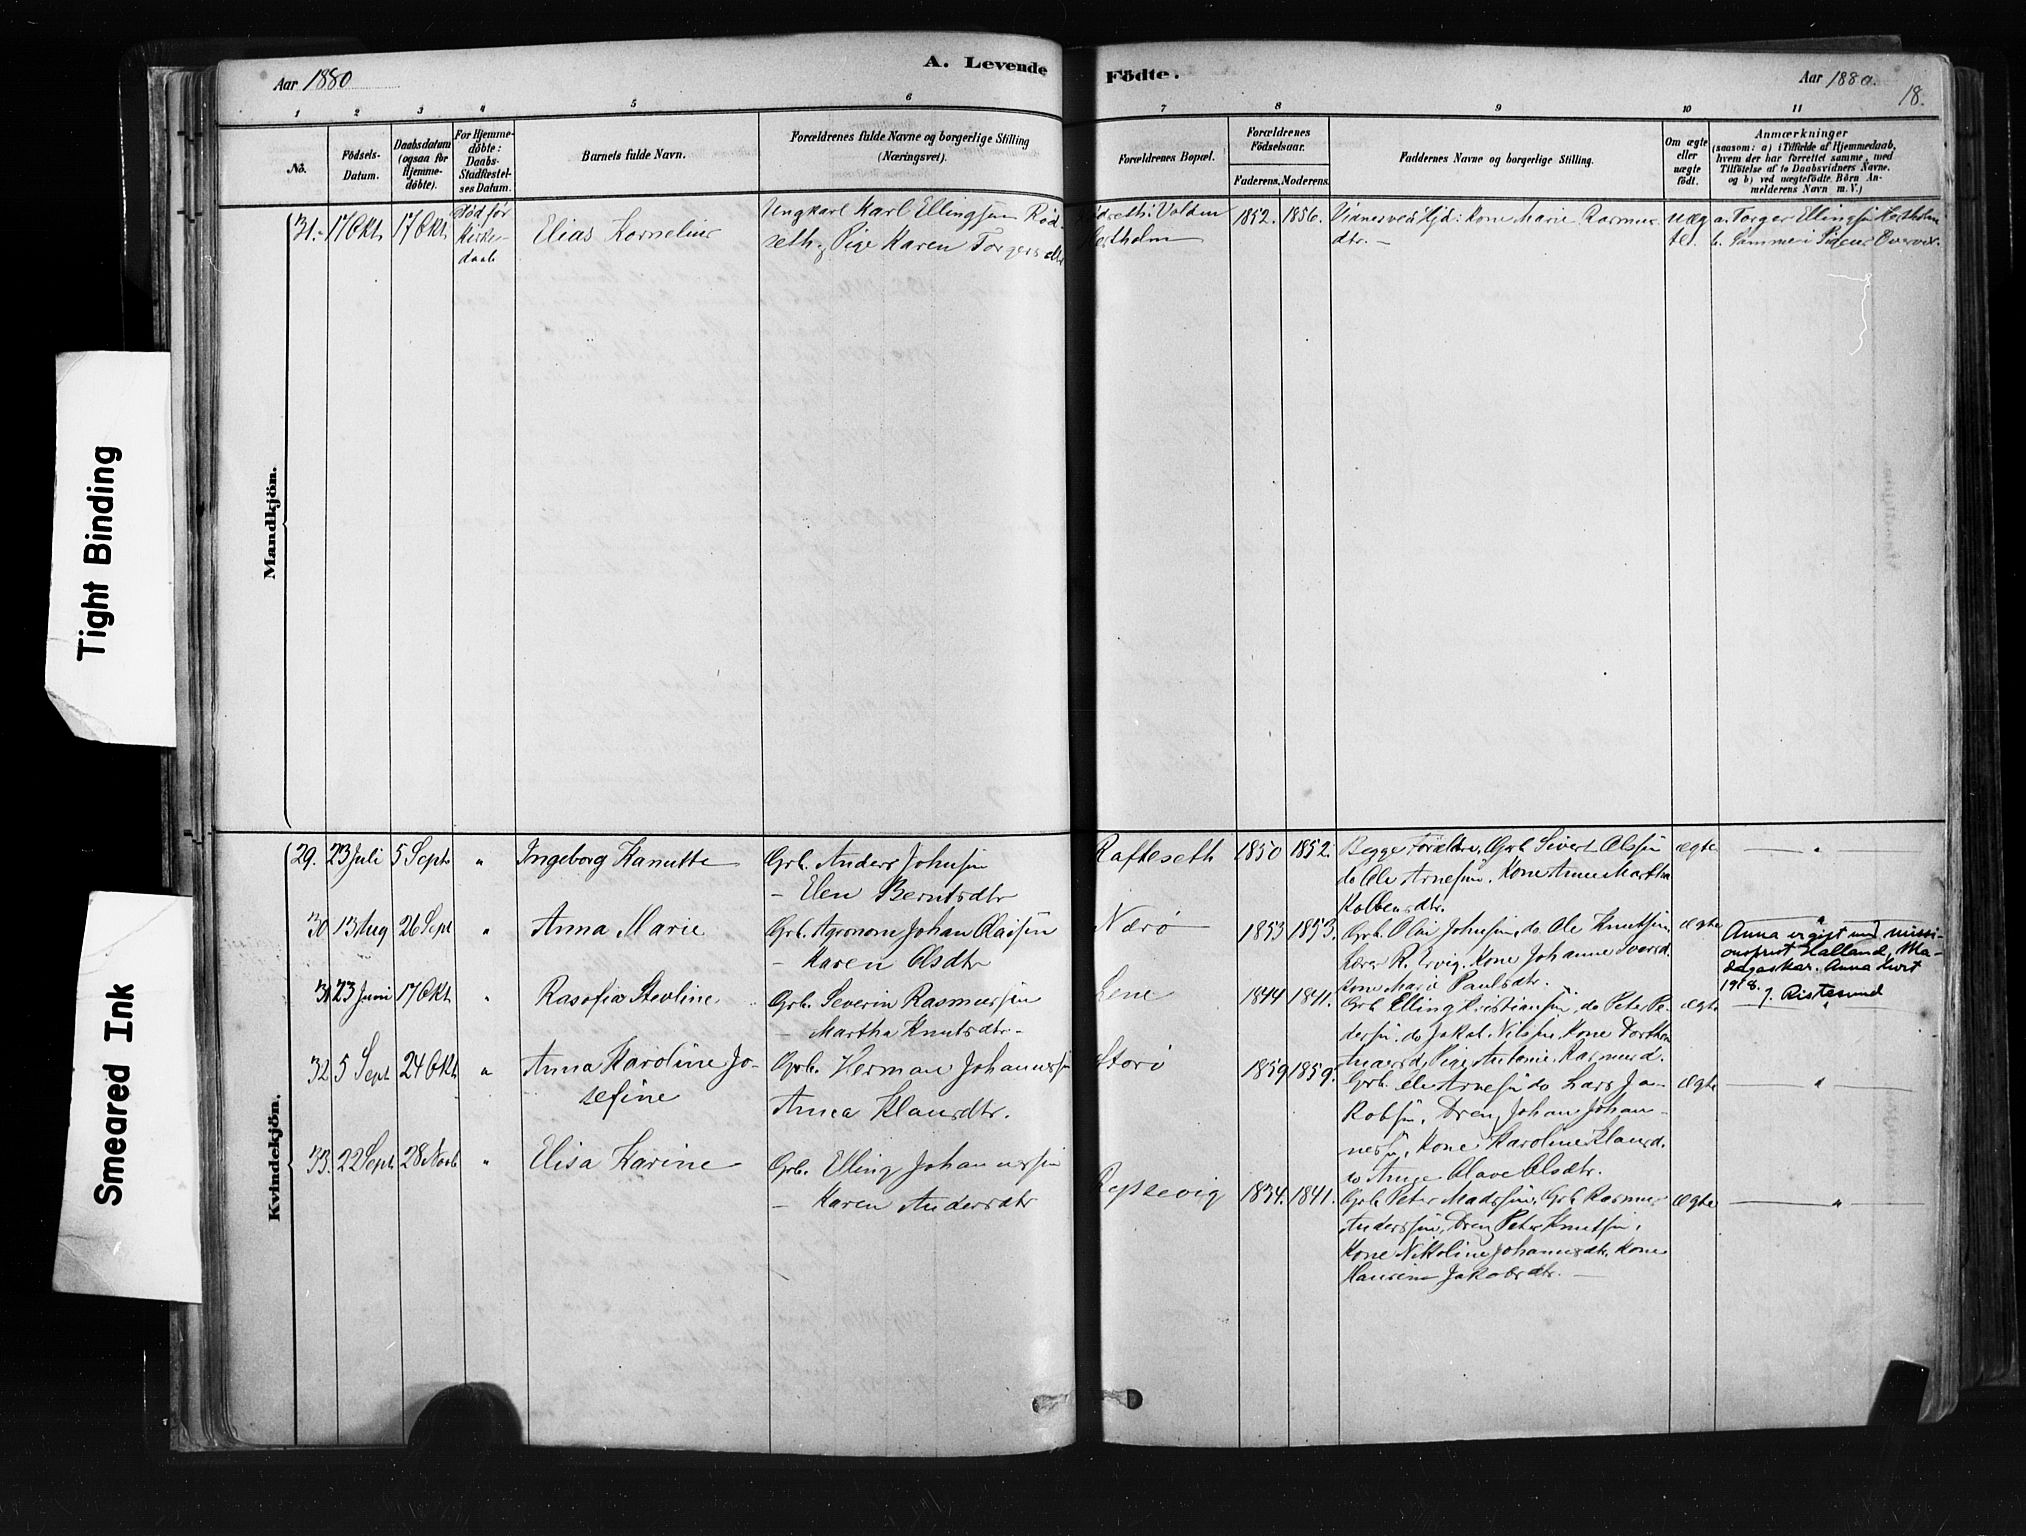 Tight Binding
Smeared Ink
Aar 1880
A. Levende
Födte.
Aar 1880.
18.
1 2 3 4 5 6 7 8 9 10 11
No.
Födsels-
Datum.
Daabsdatum
(ogsaa for
Hjemme-
döbte).
For Hjemme-
döbte:
Daabs-
Stadfæstel-
ses Datum.
Barnets fulde Navn.
Forældrenes fulde Navne og borgerlige Stilling
(Næringsvei).
Forældrenes Bopæl.
Forældrenes
Födselsaar.
Faderens. Moderens.
Faddernes Navne og borgerlige Stilling.
Om ægte
eller
uægte
födt.
Anmærkninger
(saasom: a) i Tilfælde af Hjemmedaab,
hvem der har forrettet samme, med
Tilföielse af to Daabsvidners Navne.
og b) ved uægtefödte Börn An-
melderens Navn m. V.)
Mandkjön.
31. 17 Okt. 17 Okt.
Död før
Kirke-
daab
Elias Kornelius
Ungkarl Karl Ellingsen Rød-
seth, Pige Karen Torgersdtr
Rødseth i Volden
Hestholm
1852. 1856.
Kone Marie Rasmus-
dtr. —
uæg-
te.
a. Torger Ellingsen Hestholm
b.
Kvindekjön.
29. 23 Juli 5 Sept. " Ingeborg Hanutte
Grb. Anders Johnsen
— Elen Berntsdtr
Rafteseth 1850 1852.
Begge Forældre, Grb. Sivert Olssen
do Ole Arnesen. Kone Anne Martha
Kolbensdtr.
ægte — " —
30 13 Aug 26 Sept " Anna Marie
Grb. Agronom Johan Olaisen
— Karen Olsdtr
Nærø 1853 1853.
Grb. Olai Johnsen, do Ole Knutsen,
Lærer R. Ervig. Kone Johanne Iversd.
Kone Marie Paulsdtr.
ægte — " —
Anna er gift med missi-
onsprest Halland, Ma-
dagaskar. Anna
1918.
J. Ristesund
31 23 Juni 17 Okt. " Rasofia Stevline
Grb. Severin Rasmussen
— Martha Knutsdtr. —
Lene 1844 1841.
Grb. Elling Kristiansen, do Peter Pe-
dersen, do Jakob Nilssen, Kone Dorthea
Andersd. Pige Antonie Rasmusd.
ægte "
32 5 Sept. 24 Okt. " Anna Karoline Jo-
sefine
Grb. Herman Johannessen
Anna Klausdtr.
Storø 1859 1859.
Grb. Ole Arnesen do Lars Ja-
kobsen, Dreng Johan Johan-
nessen, Kone Karoline Klausd.
do Anne Olave Olsdtr.
ægte — " —
33. 22 Sept. 28 Novb. " Elisa Karine
Grb. Elling Johannessen
— Karen Andersdtr
1834. 1841.
Grb. Peter Madssen, Grb. Rasmus
Anderssen, Dreng Peter Knutsen,
Kone Nikoline Johannesdtr. Kone
Hansine Jakobsdtr. —
ægte — " —